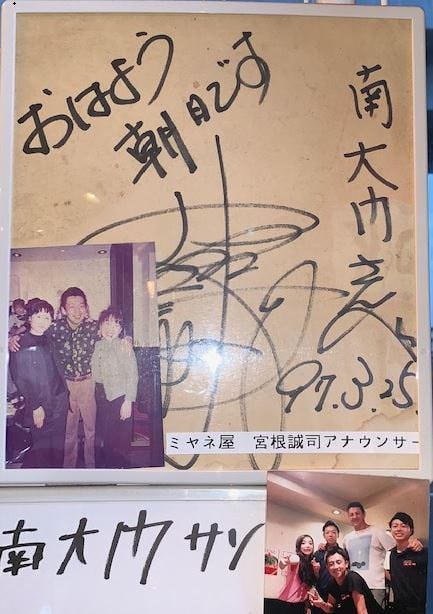 おはよう
朝日です
南大门さんへ
97.3.25.
ミヤネ屋　宮根誠司アナウンサー
南大门サン